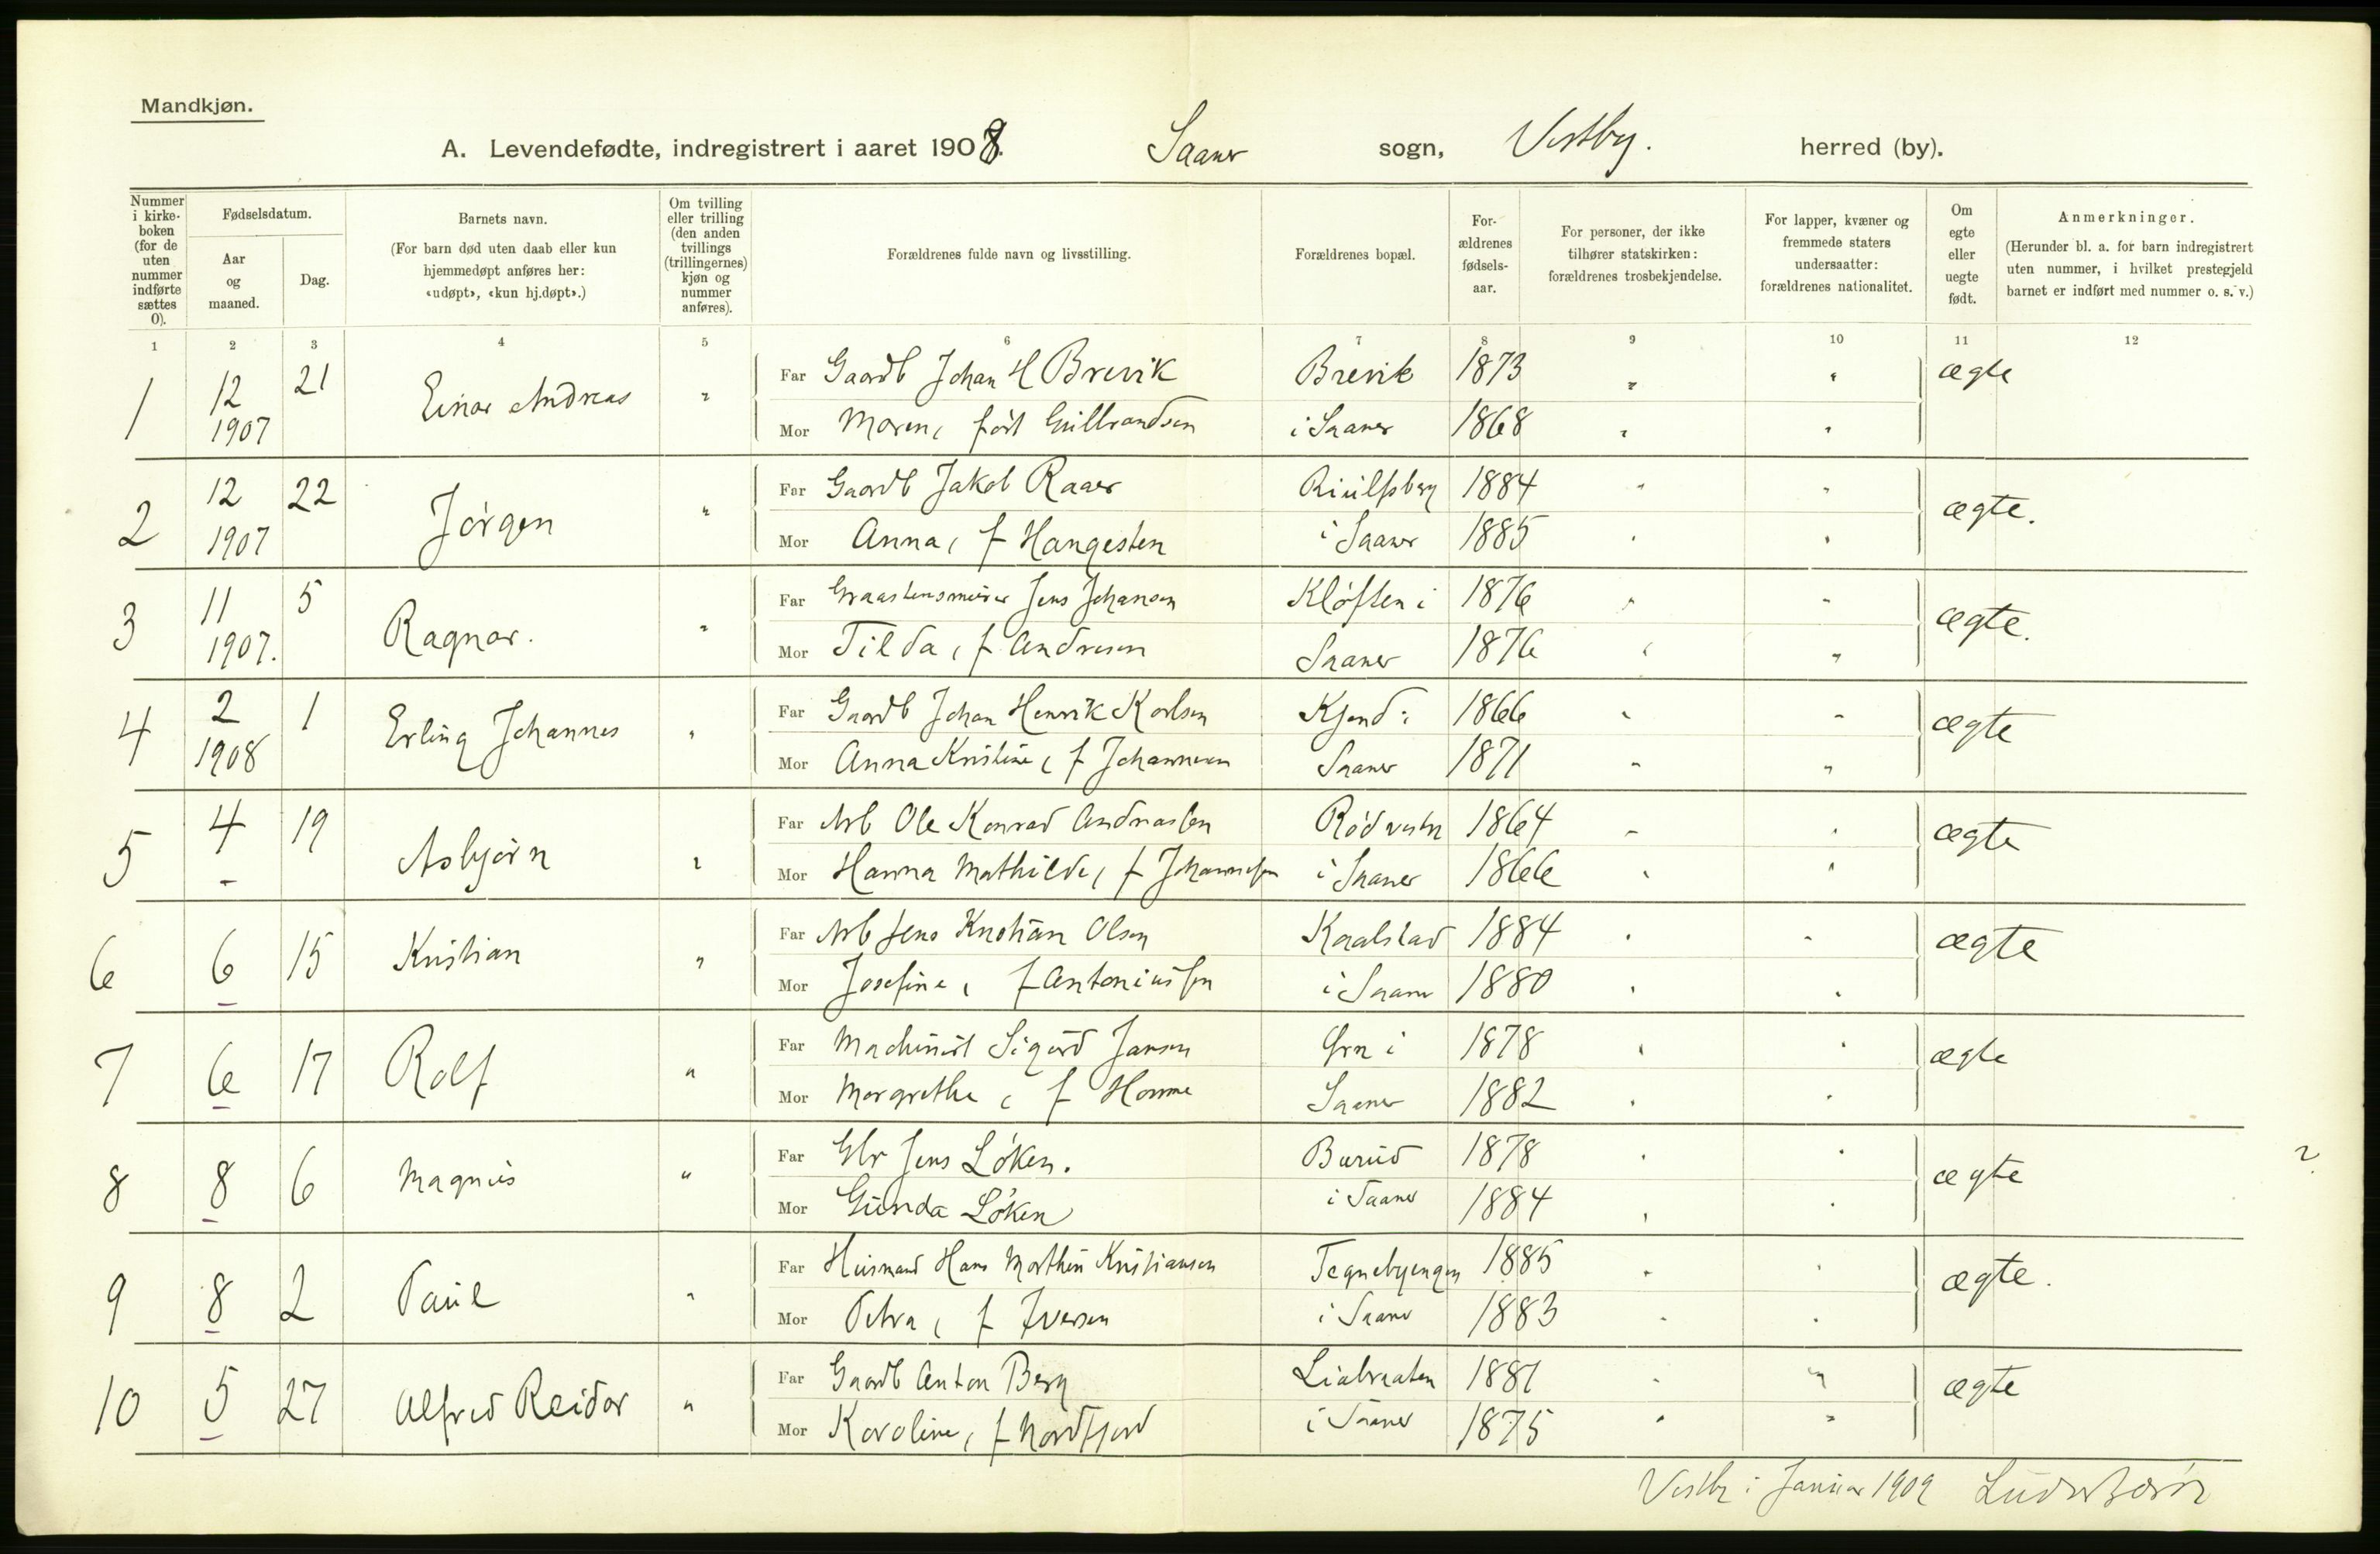 Mandkjøn.
A. Levendefødte, indregistrert i aaret 1908. Saaner sogn, Vestby. herred (by).
Nummer i kirke-boken (for de uten nummer indførte sættes 0).
Fødselsdatum.
Aar og maaned.
Dag.
Barnets navn.
(For barn død uten daab eller kun hjemmedøpt anføres her: «udøpt», «kun hj.døpt».)
Om tvilling eller trilling (den anden tvillings (trillingernes) kjøn og nummer anføres).
Forældrenes fulde navn og livsstilling.
Forældrenes bopæl.
For-ældrenes fødsels-aar.
For personer, der ikke tilhører statskirken: forældrenes trosbekjendelse.
For lapper, kvæner og fremmede staters undersaatter: forældrenes nationalitet.
Om egte eller uegte født.
Anmerkninger.
(Herunder bl. a. for barn indregistrert uten nummer, i hvilket prestegjeld barnet er indført med nummer o. s. v.)
1 2 3 4 5 6 7 8 9 10 11 12
1 12 21 Einar Andreas " Far Gaardb Johan H Brevik Brevik 1873 " " ægte
1907 Mor Maren, født Gulbrandsen i Saaner 1868 " "
2 12 22 Jørgen " Far Gaardb Jakob Raaer 1884 " " ægte.
1907 Mor Anna, f Haugesten i Saaner 1885 " "
3 11 5 Ragnar. " Far Graastensmurer Jens Johansen Kløften i 1876 " " ægte.
1907. Mor Tilda, f Andresen Saaner 1876 " "
4 2 1 Erling Johannes " Far Gaardb Johan Henrik Karlsen i 1866 " " ægte
1908 Mor Anna Kristine, f Johannesen Saaner 1871 " "
5 4 19 Asbjørn " Far Arb Ole Konrad Andreassen Rød vestre 1864 " " ægte
- Mor Hanna Mathilde, f Johannesen i Saaner 1866 " "
6 6 15 Kristian " Far Arb Jens Kristian Olsen Kaalstad 1884 " " ægte
- Mor Josefine, f Antoniussen i Saaner 1880 " "
7 6 17 Rolf " Far Machinist Sigurd Jansen i 1878 " " ægte
- Mor Margrethe, f Saaner 1882 " "
8 8 6 Magnus " Far Gbr Jens Løken. 1878 " " ægte
- Mor Gunda Løken i Saaner 1884 " "
9 8 2 Paul " Far Husmand Hans Marthin Kristiansen Tegnebyengen 1885 " " ægte.
- Mor Petra, f Iversen i Saaner 1883 " "
10 5 27 Alfred Reidar " Far Gaardb Anton Berg Liabraaten 1881 " " ægte
- Mor Karoline, f Nordfjord i Saaner 1875 " "
Vestby i Januar 1909